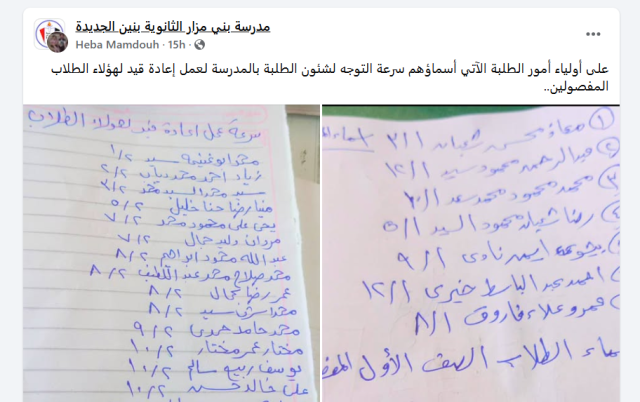 مدرسة بني مزار الثانوية بنين الجديدة
Heba Mamdouh · 15h ·
على أولياء أمور الطلبة الآتي أسماؤهم سرعة التوجه لشئون الطلبة بالمدرسة لعمل إعادة قيد لهؤلاء الطلاب
المفصولين..
سرعة عمل إعادة قيد لهولاء الطلاب
محمد ابوغنيمه سيد ١/٢
زياد احمد محمد ٢/٢
سيد محمد السيد محمد ٣/٢
مينا رضا حنا خليل ٥/٢
يحى على محمود محمد ٧/٢
مروان وليد جمال ٧/٢
عبد الله محمود ابراهيم ٨/٢
محمد صلاح محمد عبد اللطيف ٨/٢
عمر رضا جمال ٨/٢
محمد سيد ٨/٢
محمد حامد حمدى ٩/٢
مختار عمر مختار ١٠/٢
يوسف ربيع سالم ١٠/٢
على خالد حسن ١٠/٢
١ معاذ محسن شعبان ٣/١
٢ عبدالرحمن محمود سيد ١٢/١
٣ محمد محمود محمد سعد ٣/١
٤ رضا شعبان محمود السيد ٥/١
ايمن نادى ٩/١
احمد عبد الباسط خيرى ١٢/١
عمرو علاء فاروق ٨/١
الطلاب الصف الأول